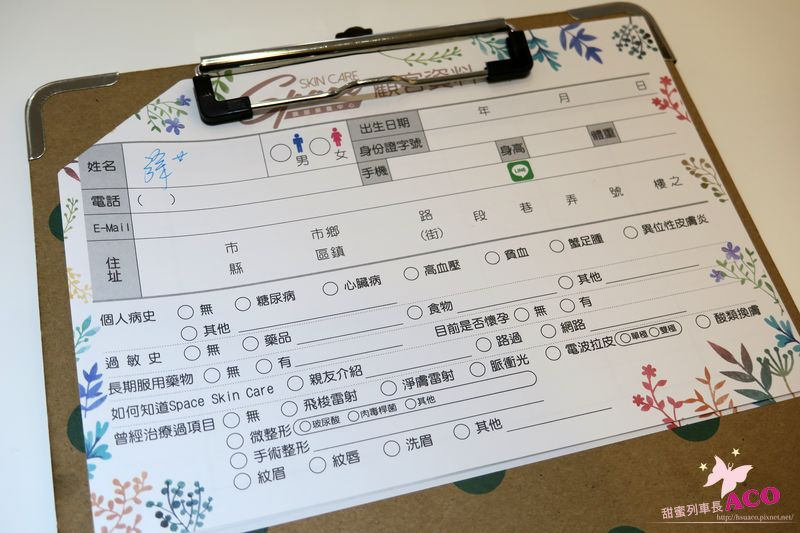 SKIN CARE
Space 顧客資料
姓名 薛 男 女 出生日期 年 月 日
身份證字號 身高 體重
電話 ( ) 手機 LINE
E-Mail
住址 市縣 市鄉區鎮 路(街) 段 巷 弄 號 樓之
個人病史 無 糖尿病 心臟病 高血壓 貧血 蟹足腫 異位性皮膚炎
其他
過敏史 無 藥品 食物 其他
長期服用藥物 無 有 目前是否懷孕 無 有
如何知道Space Skin Care 親友介紹 路過 網路
曾經治療過項目 無 飛梭雷射 淨膚雷射 脈衝光 電波拉皮 (單極 雙極) 酸類換膚
微整形 (玻尿酸 肉毒桿菌 其他
手術整形
紋眉 紋唇 洗眉 其他
甜蜜列車長ACO
http://hsuaco.pixnet.net/